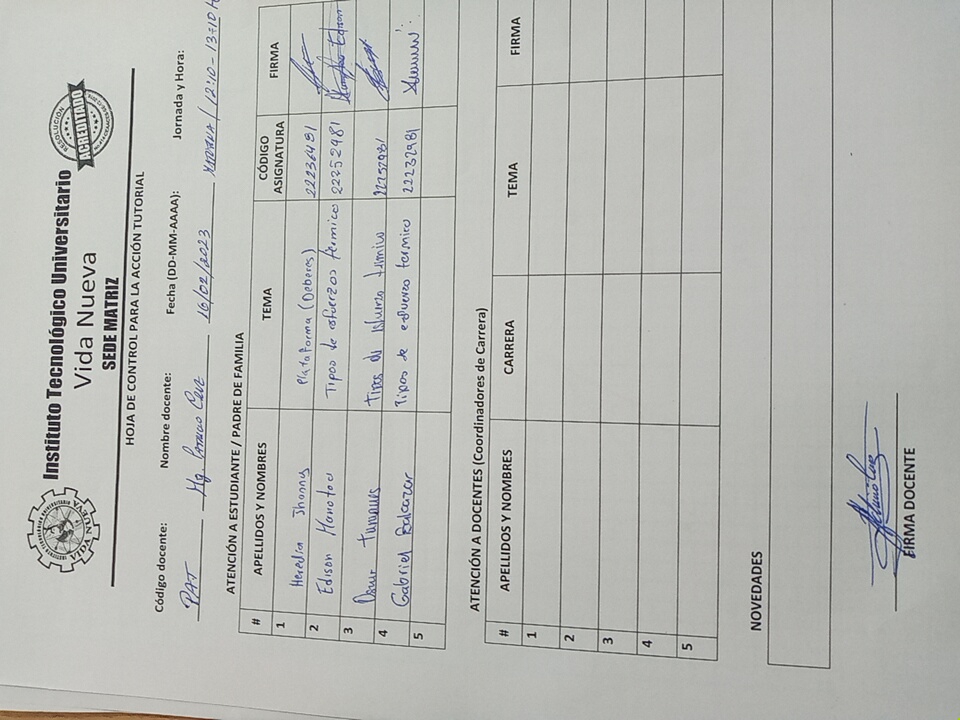 Instituto Tecnológico Universitario
Vida Nueva
SEDE MATRIZ
INSTITUTO TECNOLÓGICO UNIVERSITARIO
VIDA NUEVA
RESOLUCIÓN
ACREDITADO
HOJA DE CONTROL PARA LA ACCIÓN TUTORIAL
Código docente: Nombre docente: Fecha (DD-MM-AAAA): Jornada y Hora:
PAT Mg. Patricio Cruz 16/02/2023 MATUTINA / 12:10 - 13:10 H
ATENCIÓN A ESTUDIANTE / PADRE DE FAMILIA
# APELLIDOS Y NOMBRES TEMA CÓDIGO ASIGNATURA FIRMA
1 Heredia Jhonny Plataforma (Deberes) 22236481
2 Edison Tipos de esfuerzos termico 22252981 Edison
3 tipos de esfuerzo termico 22252981
4 Gabriel Balcazar Tipos de esfuerzo termico 22232981
5
ATENCIÓN A DOCENTES (Coordinadores de Carrera)
# APELLIDOS Y NOMBRES CARRERA TEMA FIRMA
1
2
3
4
5
NOVEDADES
FIRMA DOCENTE